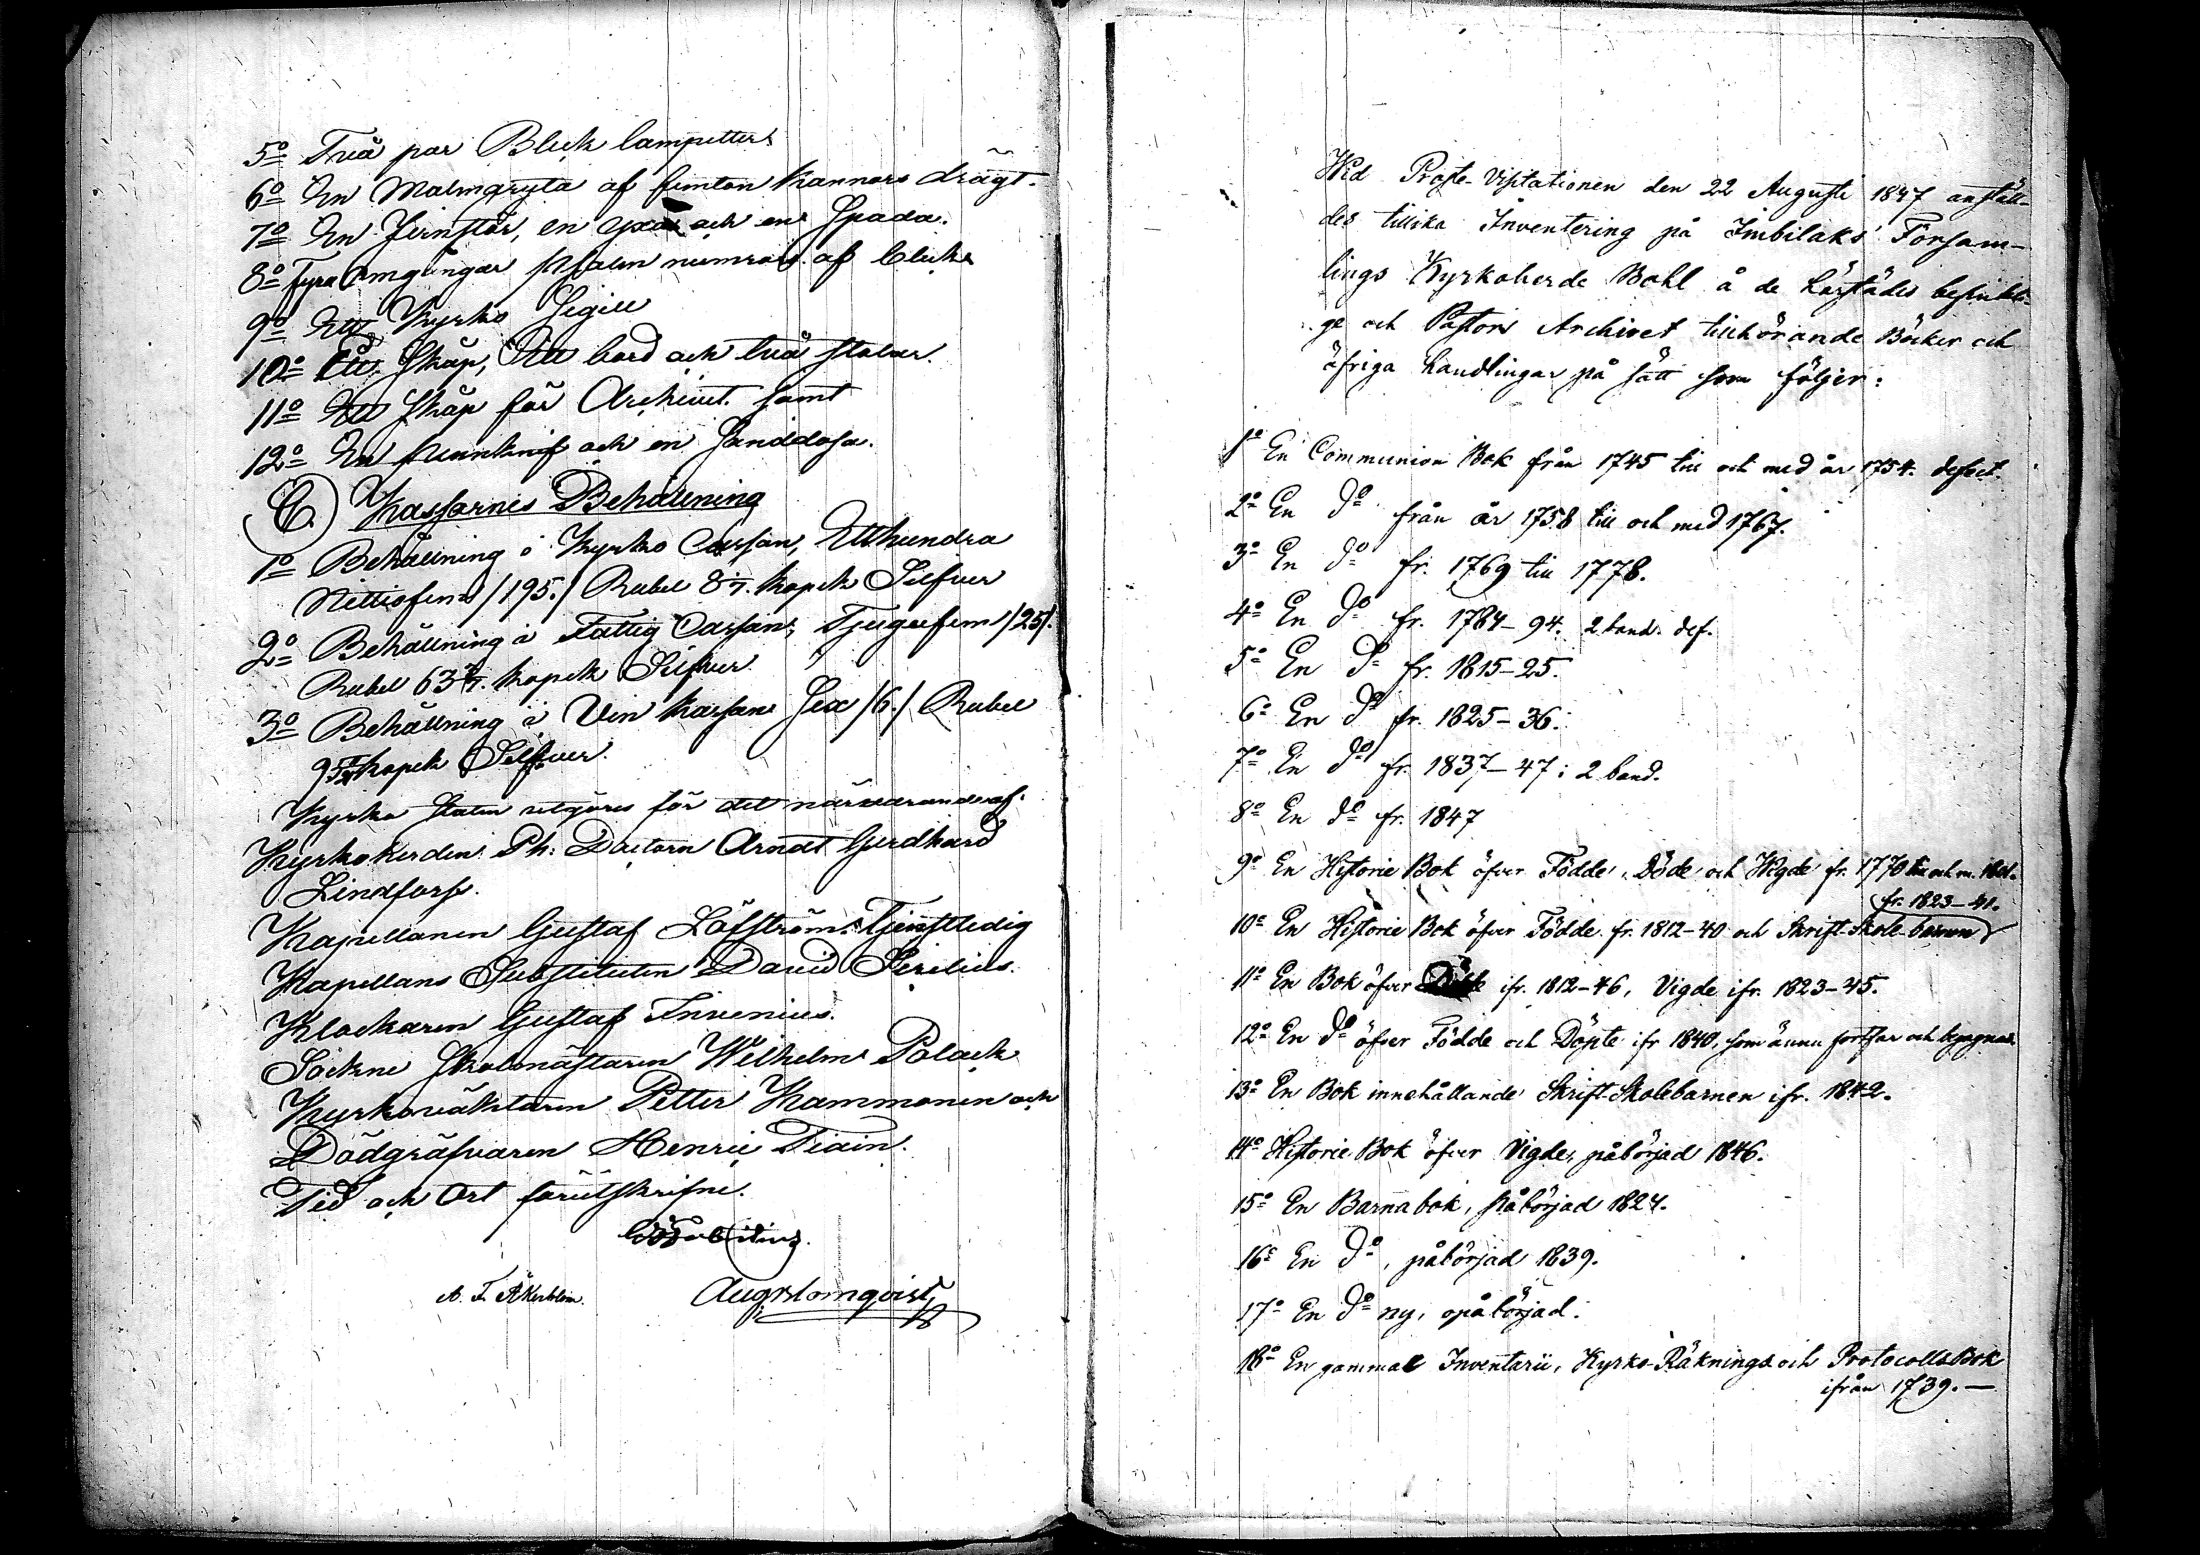 5o Två par Bleck lampetter
6o En Malmgryta af femton kannors drägt.
7o En Jernstör, en yxa och en Spada.
8o Fyra omgångar Psalm numror af bleck
9o Ett Kyrko Sigill
10o Ett Skåp, Ett bord och två stolar.
11o Ett skåp för Archivet samt
12o En pennknif och en Sanddosa.
C. Kassornes Behållning
1o Behållning i Kyrko Cassan, Etthundra
Nittiofem /195./ Rubel 8 4/7. kopek Silfver
2o Behållning i Fattig Cassan, Tjugufem /25/.
Rubel 63 kopek Silfver
3o Behållning i Vin kassan Sex /6./ Rubel
kopek Silfver.
Kyrko Staten utgöres för det närvarande af:
Kyrkoherden Ph: Doctorn Arndt Gerdhard
Lindforss.
Kapellanen Gustaf Löfström, Tjenstledig
Kapellans Substituten David Sirelius.
Klockaren Gustaf Invenius.
Sockne Skolmästaren Wilhelm Polack
Kyrkoväktaren Petter Kammonen och
Dödgräfvaren Henric Tiain.
Tid och Ort förutskrifne.
A. F. Åkerblom. Aug. Blomqvist
Wid Proste-Visitationen den 22 Augusti 1847 anställ-
des tillika Inventering på Imbilaks Försam-
lings Kyrkoherde Bohl å de härstädes befintli-
ge och Pastors Archivet tillhörande Böcker och
öfriga handlingar på sätt som följer:
1o En Communion Bok från 1745 till och med år 1754. defect.
2o En do från år 1758 till och med 1767.
3o En do fr. 1769 till 1778.
4o En do fr. 1784-94. 2 band. def.
5o En do fr. 1815-25.
6o En do fr. 1825-36.
7o En do fr. 1837-47: 2 band.
8o En do fr. 1847
9o En Historie Bok öfver Födde, Döde och Wigde fr. 1770 till och m.
fr. 1823-41.
10o En Historie Bok öfver Födde fr. 1812-40 och Skrift-Skole-barnen
11o En Bok öfver Döde ifr. 1812-46, Vigde ifr. 1823-45.
12o En do öfver Födde och Döpte ifr 1840, som ännu fortfar och begagnas.
13o En Bok innehållande Skrift-Skolebarnen ifr. 1842.
14o Historie Bok öfver Vigde, påbörjad 1846.
15o En Barnabok, påbörjad 1824.
16o En do, påbörjad 1839.
17o En do ny, opåbörjad.
18o En gammal Inventarii, Kyrko-Räknings och Protocolls Bok
ifrån 1739.—